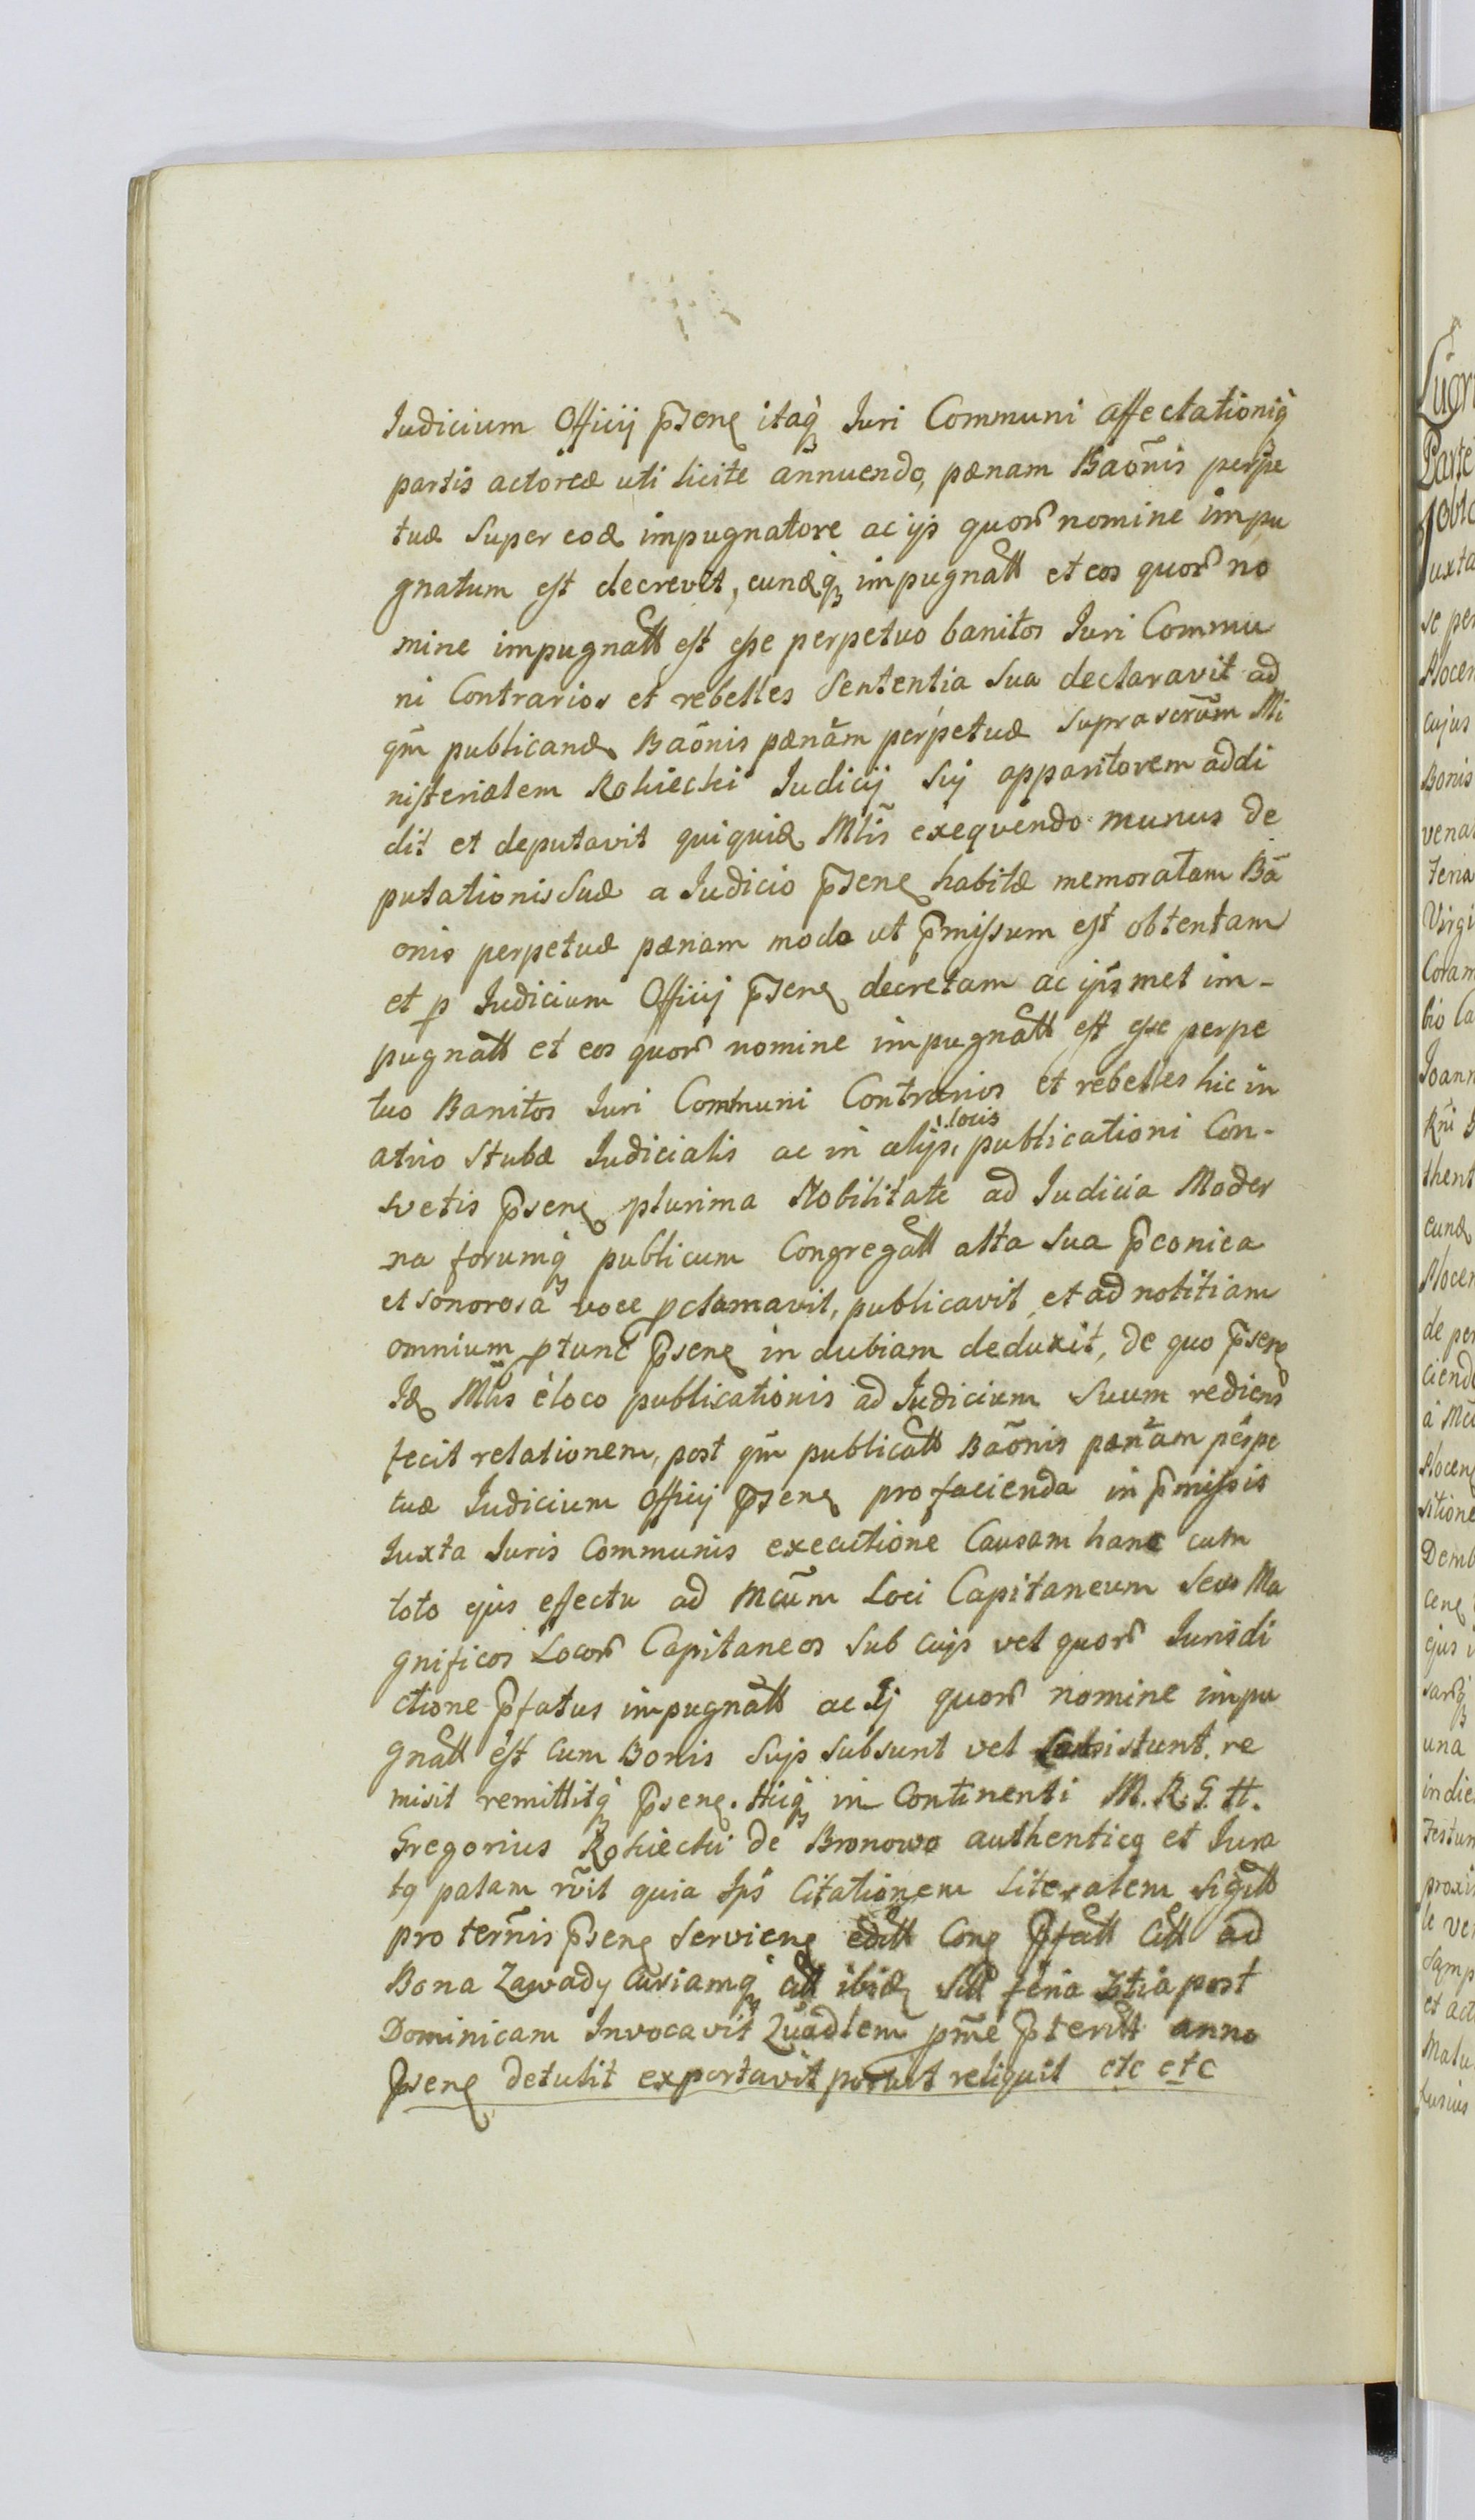 Judicium Officij p̃senς itaq̃ꝫ Juri Communi affectationiq̃
partis actoreæ uti licite annuendo, pænam Baõnis perpe
tuæ super eodꝫ impugnatore ac ijs quor̃ nomine impu
gnatum est decrevit, eundꝫqꝫ impugnatt et eos quor̃ no
mine impugnatt est esse perpetuo banitos Juri Commu
ni Contrarios et rebelles Sententia sua declaravit ad
qm̃ publicandꝫ Baõnis pænam perpetuæ suprascrũm Mi
nisterialem Rokiecki Judicij sui apparitorem addi
dit et deputavit qui quidꝫ Mlis̃ exequendo munus de
putationis suæ a Judicio p̃senς habitæ memoratam Bã
onis perpetuæ pænam modo ut p̃missum est obtentam
et ꝑ Judicium Officij p̃senς decretam ac ip̃smet im-
pugnatt et eos quor̃ nomine impugnatt est esse perpe
tuo Banitos Juri Communi Contrarios et rebelles hic in
atrio Stubæ Judicialis ac in alijs locis publicationi Con-
svetis p̃senς plurima Nobilitate ad Judicia Moder
na forumq̃ꝫ publicum Congregatt alta sua p̃conica
et sonorosa voce ꝓclamavit, publicavit et ad notitiam
omnium ꝓtunc p̃senς in dubiam deduxit, de quo p̃senς
Idꝫ Mlis̃ e loco publicationis ad Judicium suum rediens
fecit relationem, post qm̃ publicatt Baõnis pænam perpe
tuæ Judicium Officij p̃senς pro facienda in p̃missis
Juxta Juris Communis executione Causam hanc cum
toto ejus effectu ad Mcũm Loci Capitaneum seu Ma
gnificos Locor̃ Capitaneos sub cujs vel quor̃ Jurisdi
ctione p̃fatus impugnatt ac Ij quor̃ nomine impu
gnatt est cum Bonis sujs subsunt vel consistunt. re
misit remittitq̃ꝫ p̃senς. Hicq̃ꝫ in Continenti M. R. G. H.
Gregorius Rokiecki de Bronowo authenticq et Jura
tq palam rṽit quia Ips̃ Citationem Literalem Sigitt
pro ter̃nis p̃senς servienς editt Conς p̃fatt Citt ad
Bona Zawady Curiamq̃ꝫ citt ibidꝫ Sitt feria 3tia post
Dominicam Invocavit Quãdlem pm̃e p̃teritt anno
p̃senς detulit exportavit posuit reliquit etc etc